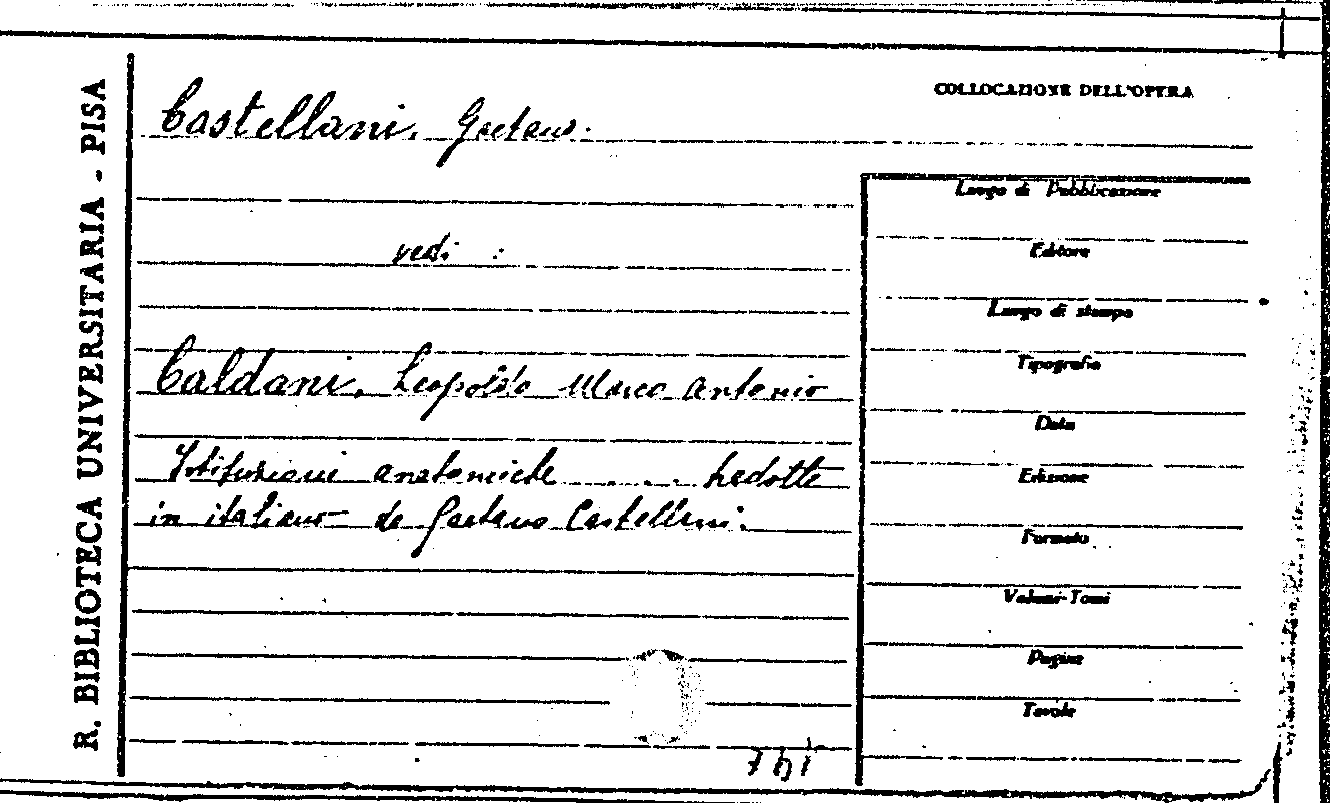 R. BIBLIOTECA UNIVERSITARIA - PISA
COLLOCAZIONE DELL'OPERA
Castellani, Gaetano.
vedi :
Caldani, Leopoldo Marco Antonio
Istituzioni anatomiche . . . . tradotte
in italiano da Gaetano Castellani.
Luogo di Pubblicazione
Editore
Luogo di stampa
Tipografia
Data
Edizione
Formato
Volumi-Tomi
Pagine
Tavole